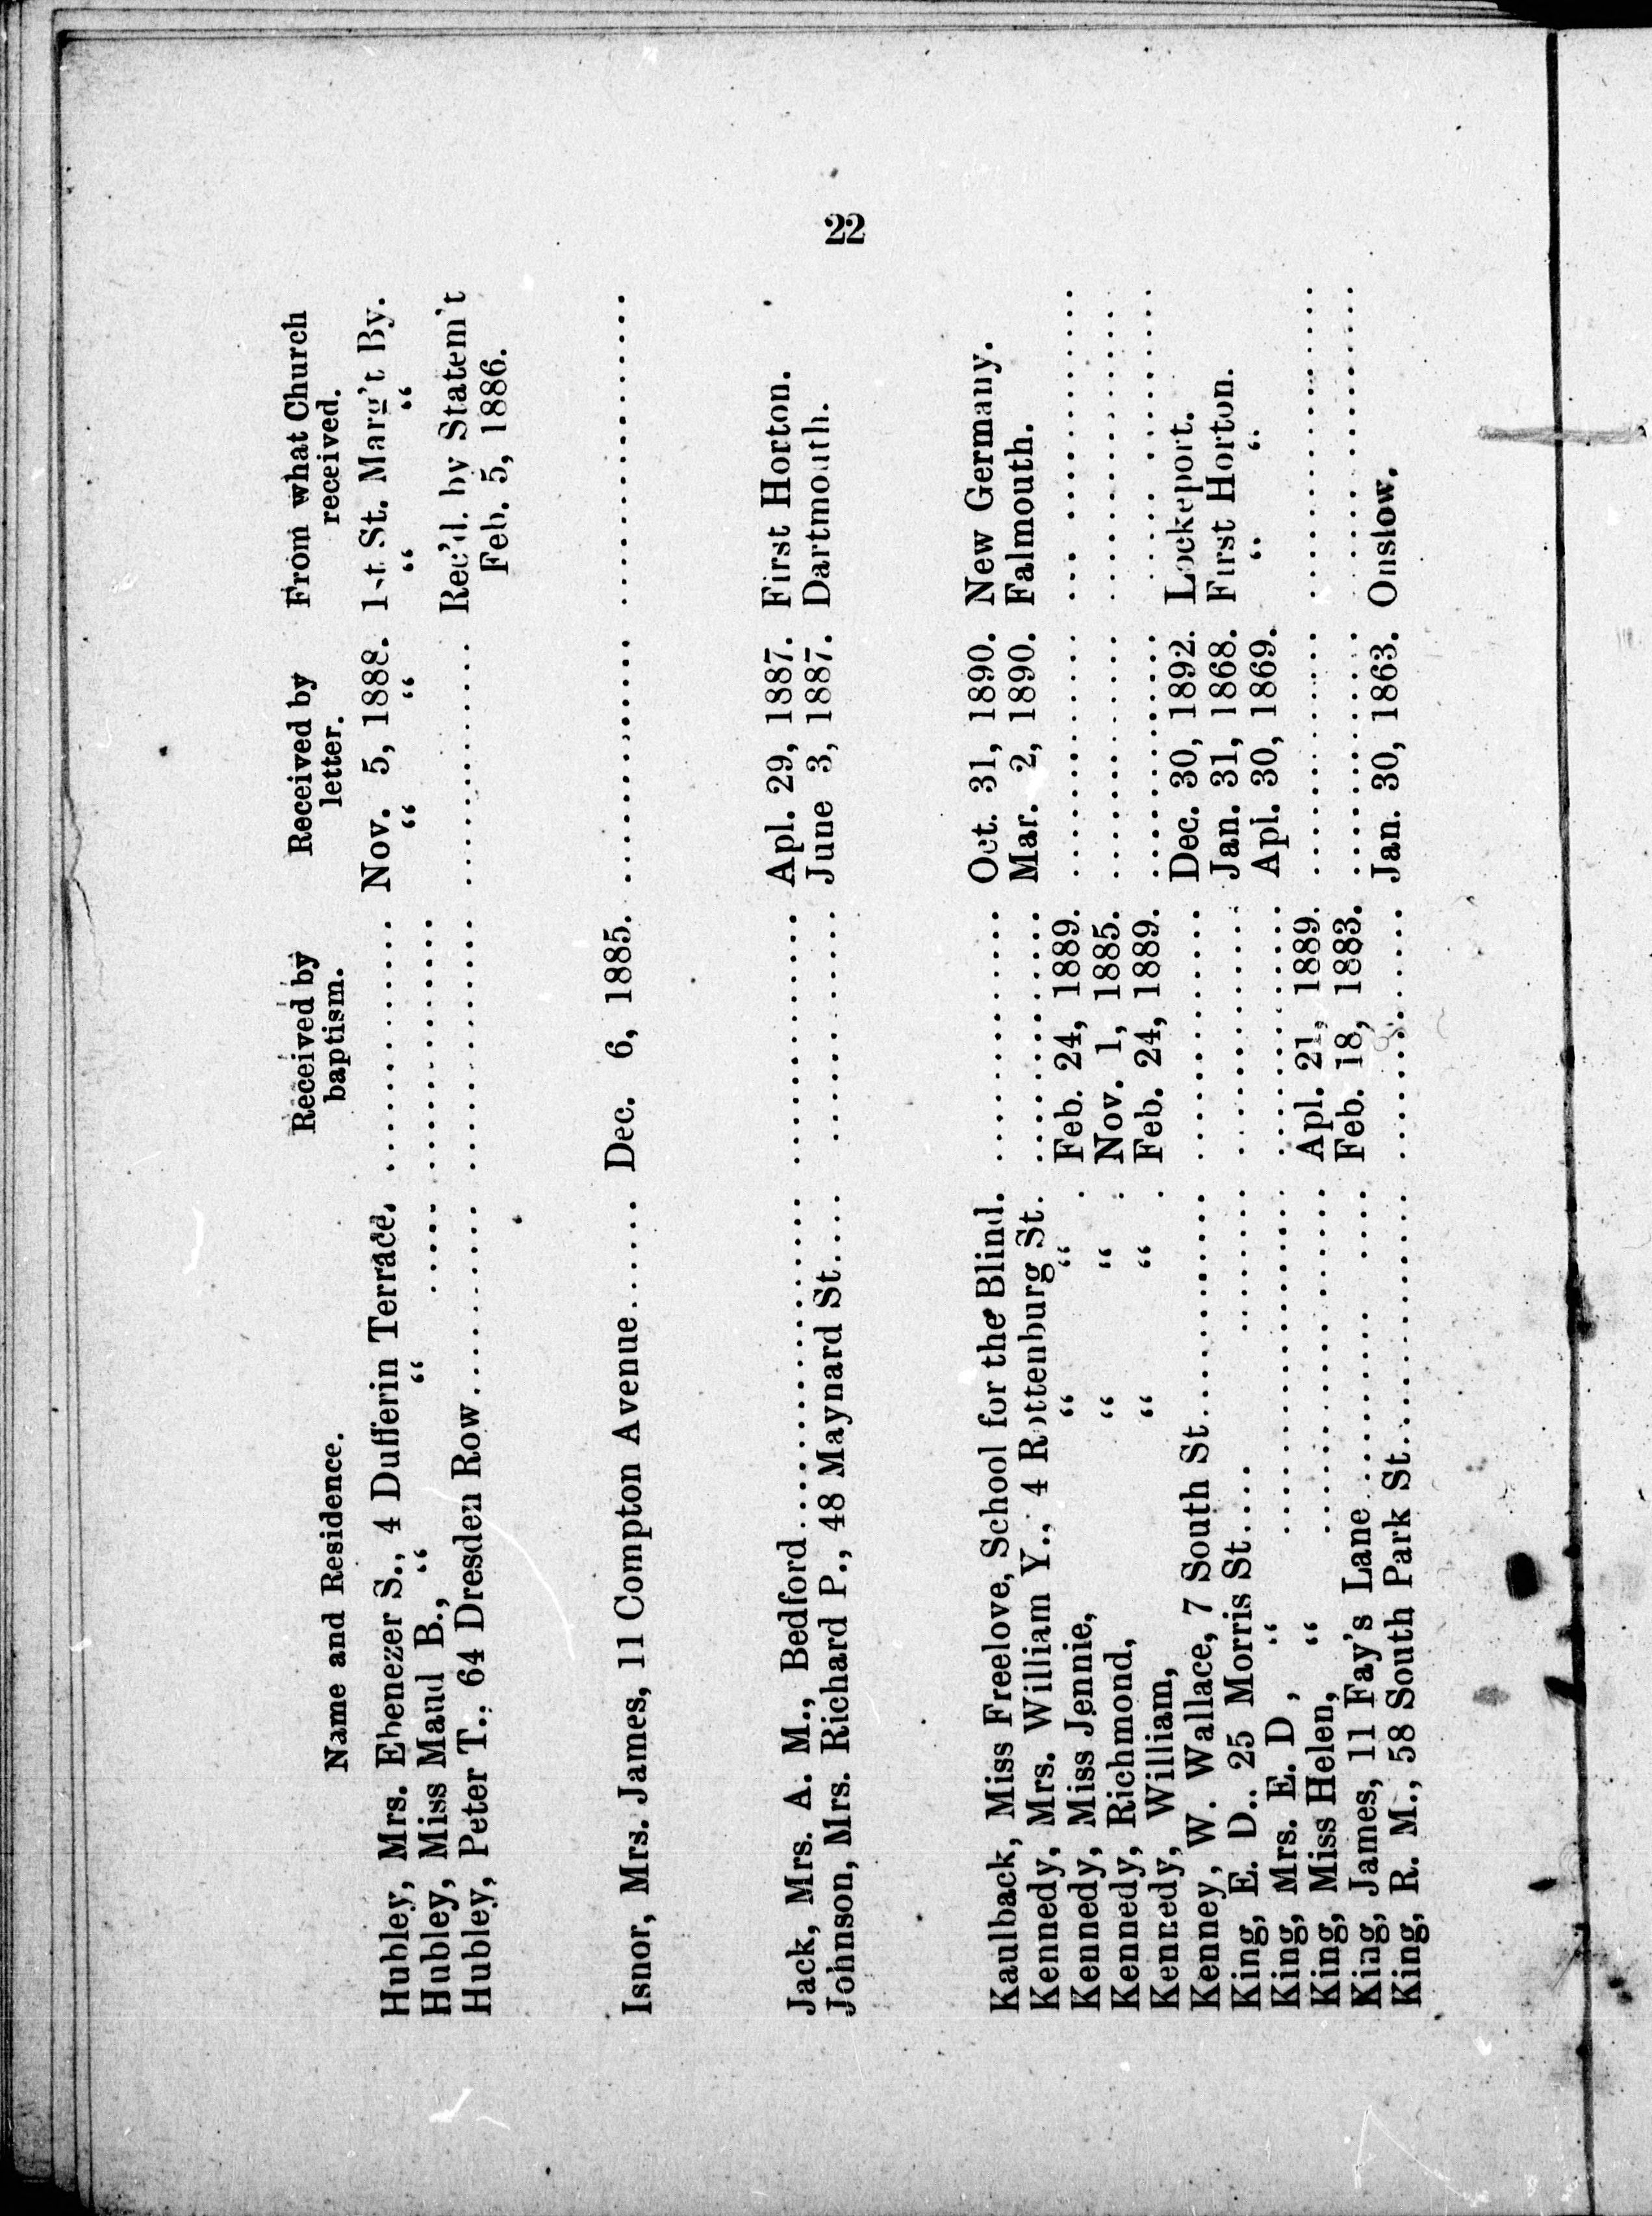 22
Name and Residence. Received by baptism. Received by letter. From what Church received.
Hubley, Mrs. Ebenezer S., 4 Dufferin Terrace. .......... Nov. 5, 1888. 1st St. Marg't By.
Hubley, Miss Maud B., “ “ .... .......... “ “ “ “
Hubley, Peter T., 64 Dresden Row.......... .......... .......... Rec'd. by Statem't
Feb. 5, 1886.
Isnor, Mrs. James, 11 Compton Avenue..... Dec. 6, 1885. .......... ..........
Jack, Mrs. A. M., Bedford.......... .......... Apl. 29, 1887. First Horton.
Johnson, Mrs. Richard P., 48 Maynard St.... .......... June 3, 1887. Dartmouth.
Kaulback, Miss Freelove, School for the Blind. .......... Oct. 31, 1890. New Germany.
Kennedy, Mrs. William Y., 4 Rottenburg St. .......... Mar. 2, 1890. Falmouth.
Kennedy, Miss Jennie, “ “ . Feb. 24, 1889. .......... ..........
Kennedy, Richmond, “ “ . Nov. 1, 1885. .......... ..........
Kennedy, William, “ “ . Feb. 24, 1889. .......... ..........
Kenney, W. Wallace, 7 South St.......... .......... Dec. 30, 1892. Lockeport.
King, E. D.. 25 Morris St.... ....... .......... Jan. 31, 1868. First Horton.
King, Mrs. E. D , “ .......... .......... Apl. 30, 1869. “ “
King, Miss Helen, “ .......... Apl. 21, 1889. .......... ..........
King, James, 11 Fay's Lane .......... .... Feb. 18, 1883. .......... ..........
King, R. M., 58 South Park St.......... .......... Jan. 30, 1863. Onslow.